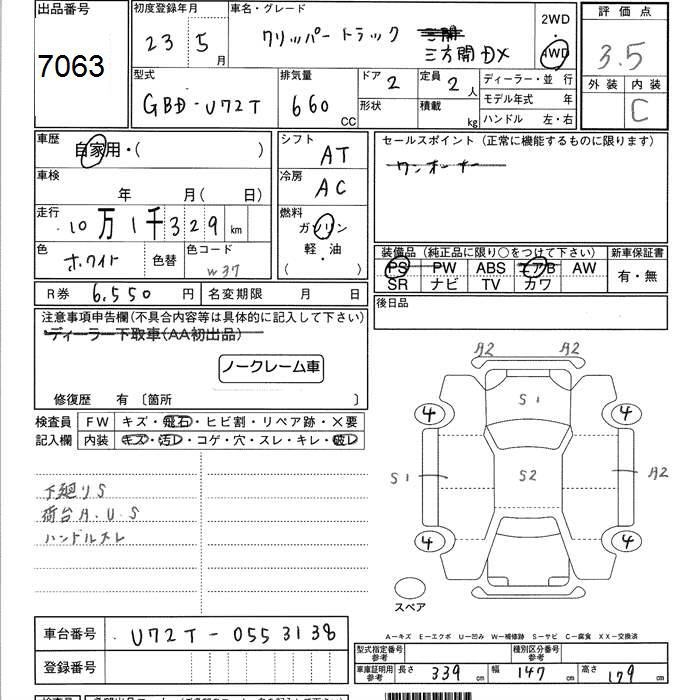 出品番号
7063
初度登録年月
23 5 月
車名・グレード
クリッパートラック 三方開 DX
2WD
・
4WD
評価点
3.5
外装 内装
C
型式
GBD-U72T
排気量
660 CC
ドア 2
形状
定員 2 人
積載 kg
ディーラー・並 行
モデル年式 年
ハンドル 左・右
車歴
自家用・( )
車検
年 月( 日)
走行
10万1千329 km
色
ホワイト 色替
色コード
W37
シフト
AT
冷房
AC
燃料
ガソリン
軽・油
( )
セールスポイント(正常に機能するものに限ります)
ワンオーナー
装備品(純正品に限り○をつけて下さい)
PS PW ABS エアB AW
SR ナビ TV カワ
新車保証書
有・無
後日品
R券 6,550 円
名変期限 月 日
注意事項申告欄(不具合内容等は具体的に記入して下さい)
ディーラー下取車(AA初出品)
ノークレーム車
修復歴 有 〔箇所 〕
検査員
記入欄
FW キズ・飛石・ヒビ割・リペア跡・×要
内装 キズ・汚レ・コゲ・穴・スレ・キレ・破レ
下廻りS
荷台A.U.S
ハンドルスレ
A2 A2
S1
4 4
S1 S2 A2
4 4
スペア
車台番号 U72T-0553138
登録番号
A-キズ E-エクボ U-凹み W-補修跡 S-サビ C-腐食 XX-交換済
型式指定番号
参考
種別区分番号
参考
車庫証明用
参考
長さ 339 cm 幅 147 cm 高さ 179 cm